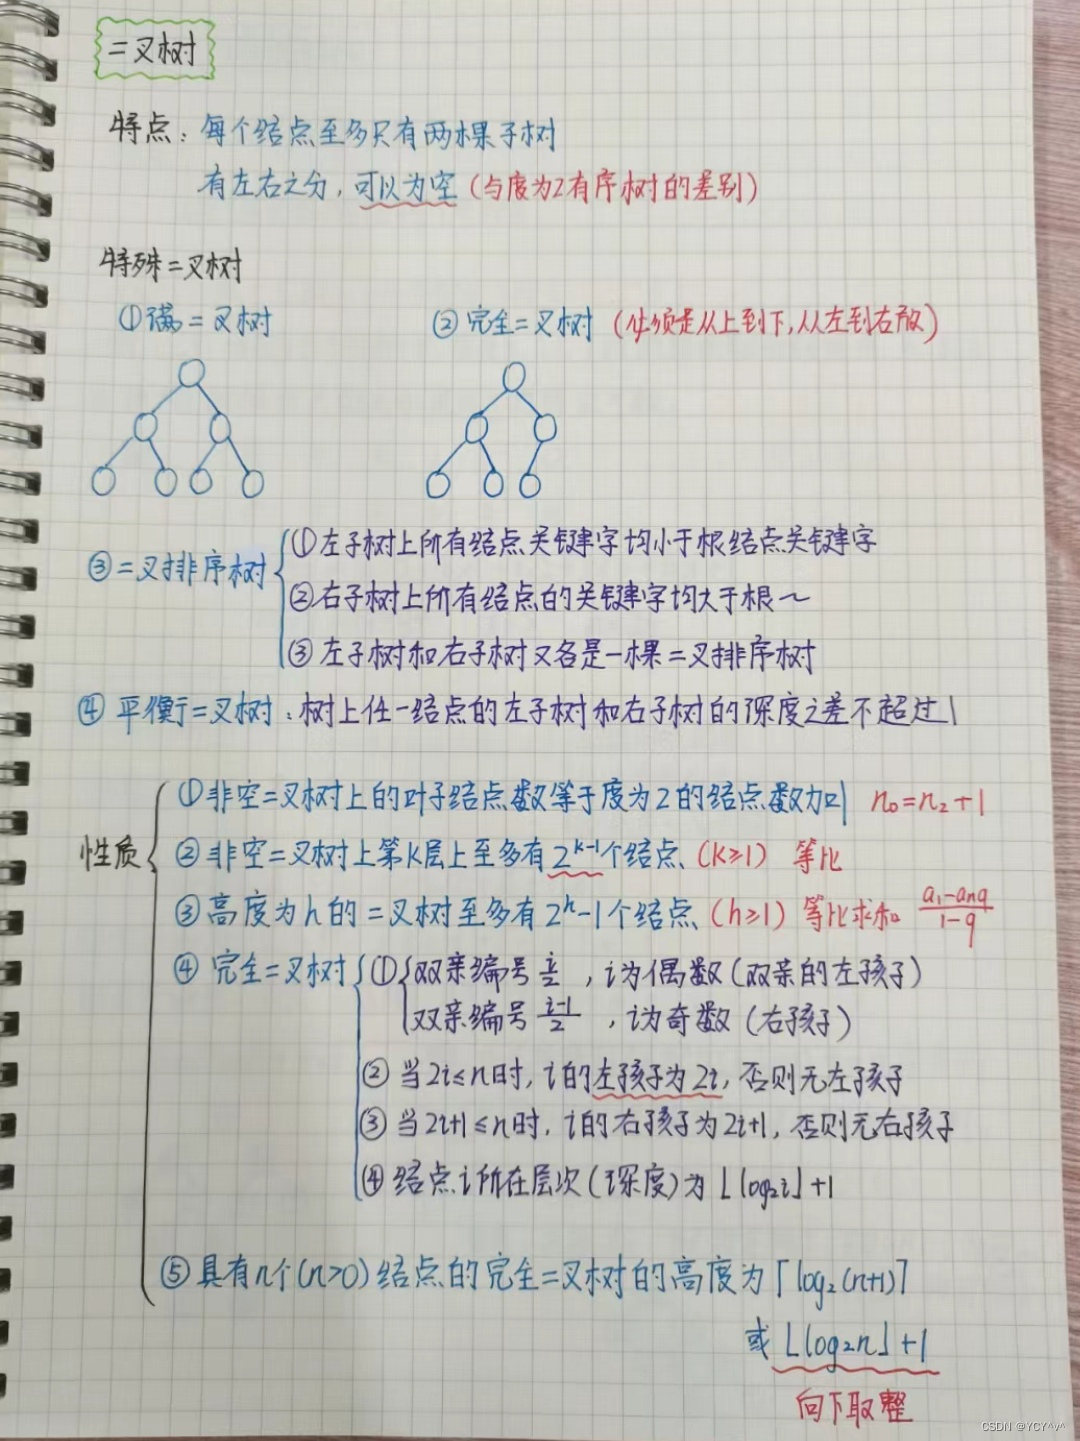 二叉树
特点：每个结点至多只有两棵子树
有左右之分，可以为空（与度为2有序树的差别）
特殊二叉树
①满二叉树 ②完全二叉树（必须是从上到下，从左到右放）
③二叉排序树 ①左子树上所有结点关键字均小于根结点关键字
②右子树上所有结点的关键字均大于根~
③左子树和右子树又各是一棵二叉排序树
④平衡二叉树：树上任一结点的左子树和右子树的深度之差不超过1
性质 ①非空二叉树上的叶子结点数等于度为2的结点数加1 n₀=n₂+1
②非空二叉树上第K层上至多有2^(k-1)个结点（K≥1） 等比
③高度为h的二叉树至多有2^h-1个结点（h≥1）等比求和 (a₁-anq)/(1-q)
④完全二叉树 ①双亲编号 i/2，i为偶数（双亲的左孩子）
双亲编号 (i-1)/2，i为奇数（右孩子）
②当2i≤n时，i的左孩子为2i，否则无左孩子
③当2i+1≤n时，i的右孩子为2i+1，否则无右孩子
④结点i所在层次（深度）为⌊log₂i⌋+1
⑤具有n个（n>0）结点的完全二叉树的高度为⌈log₂(n+1)⌉
或⌊log₂n⌋+1
向下取整
CSDN @YCY^v^